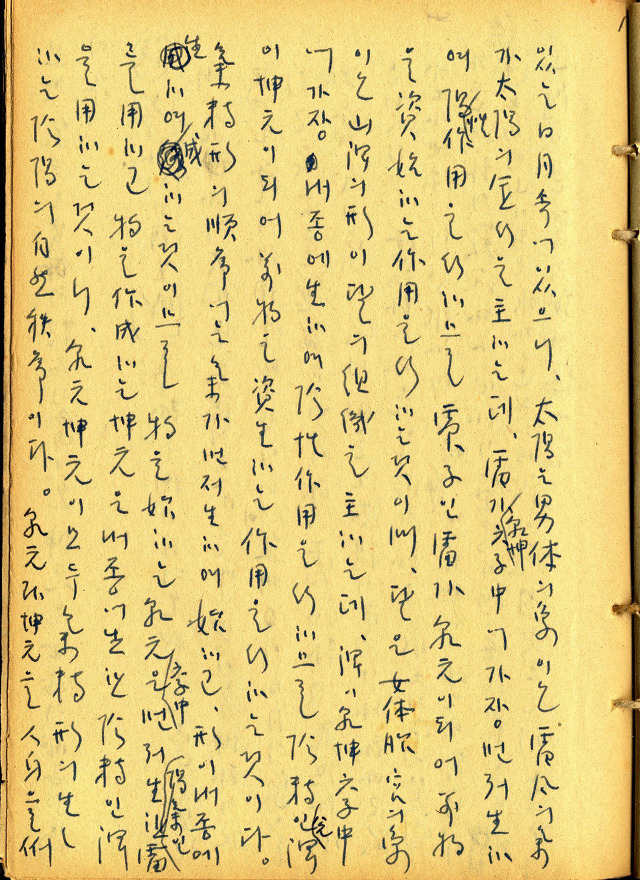 있는 日月中에 있으니, 太陽은 男体의 象이오 雷風의 氣
가 太陽의 運行을 主하는데, 雷가 乾坤六子中에 가장 먼저 生하
여 陽性作用을 行하므로 雷가 乾元이 되어 萬物
을 資始하는 作用을 行하는 것이며, 달은 女体胞宮의 象
이오 山澤의 形이 달의 組織을 主하는데, 澤이 乾坤六子中
에 가장 내종에 生하여 陰性作用을 行하므로 陰精인 澤
이 坤元이 되어 萬物을 資生하는 作用을 行하는 것이다.
氣精形의 順序에는 氣가 먼저 生하여 始하고, 形이 내종에
生하여 成하는 것이므로 物을 始하는 乾元은 六子中 먼저 生한 陽氣인 雷
를 用하고 物을 作成하는 坤元은 내종에 生한 陰精인 澤
을 用하는 것이니, 乾元坤元이 모두 氣精形의 生
하는 陰陽의 自然秩序이다. 乾元과 坤元은 人身을